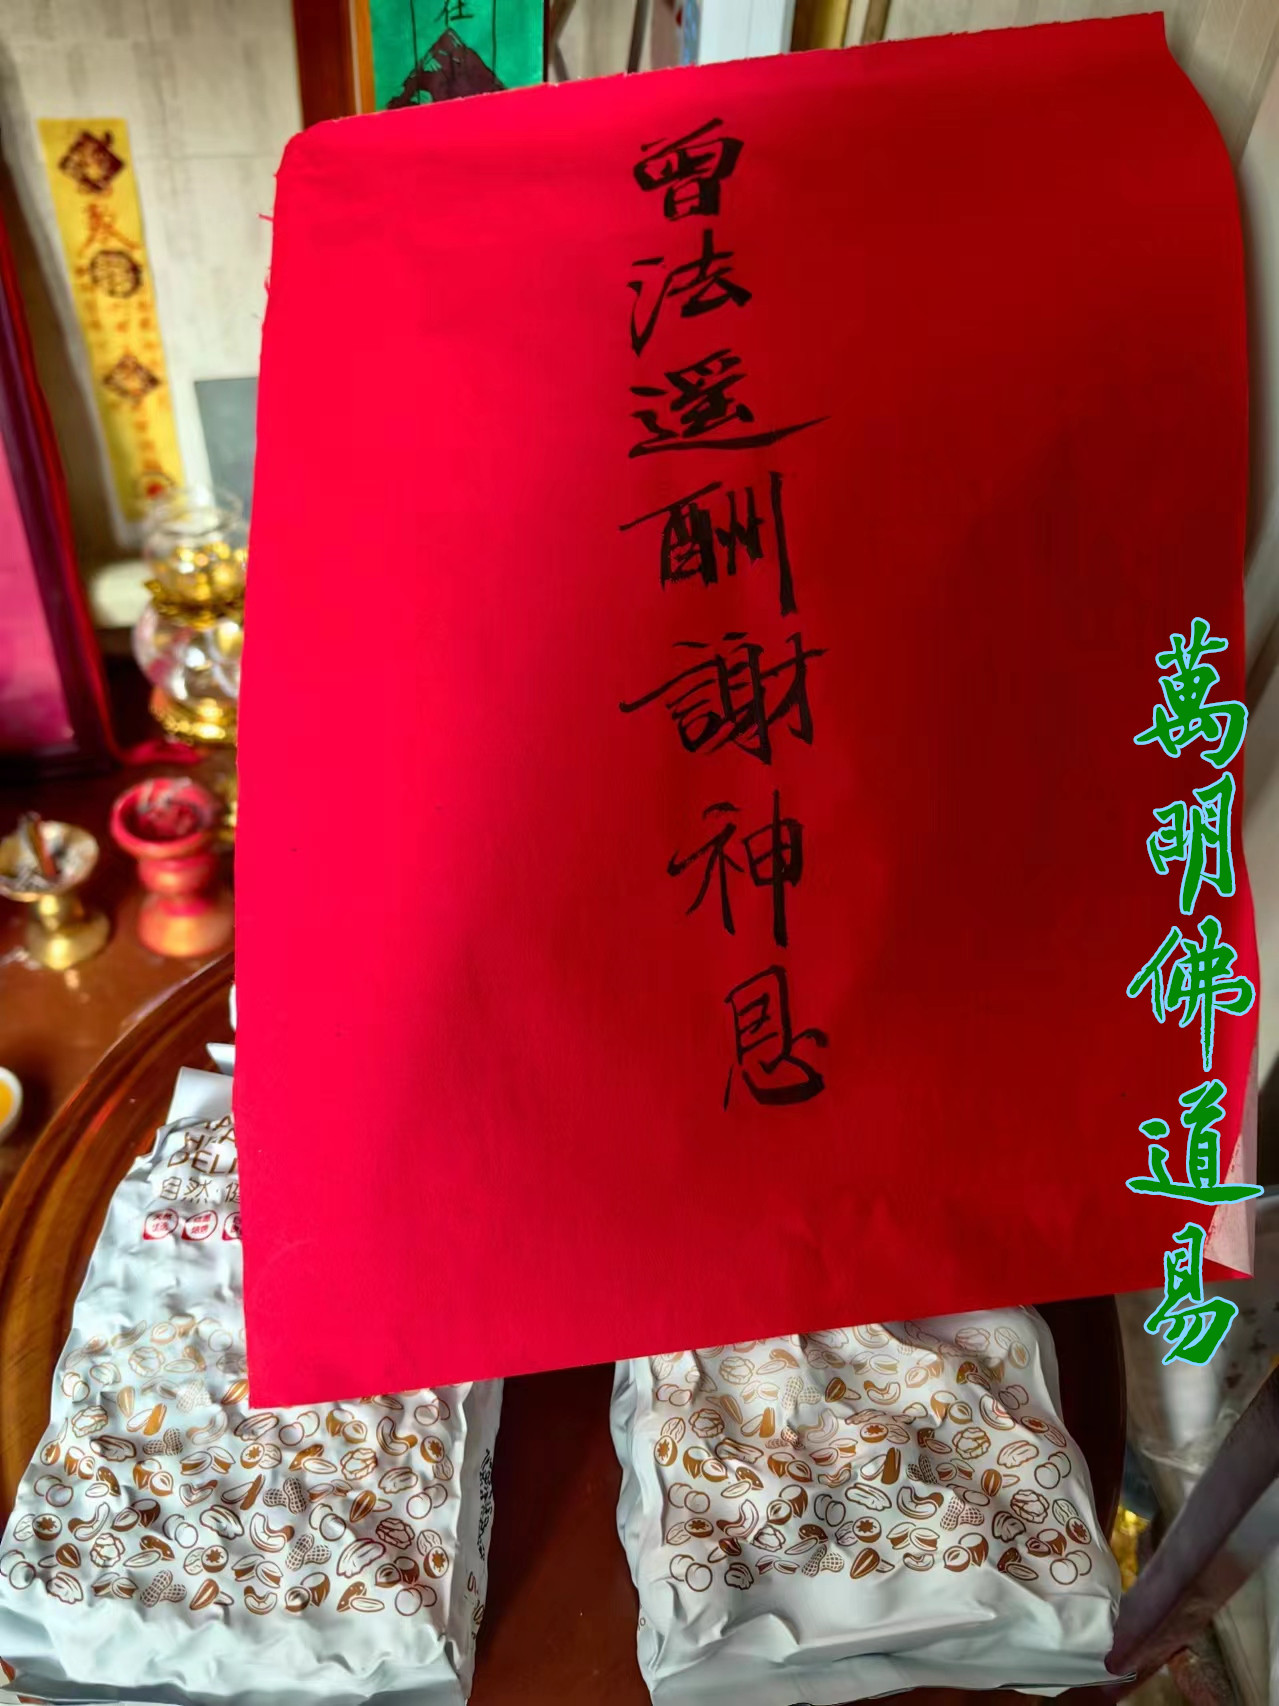 曾法遥酬謝神恩
萬明佛道易
自然·健
DELI